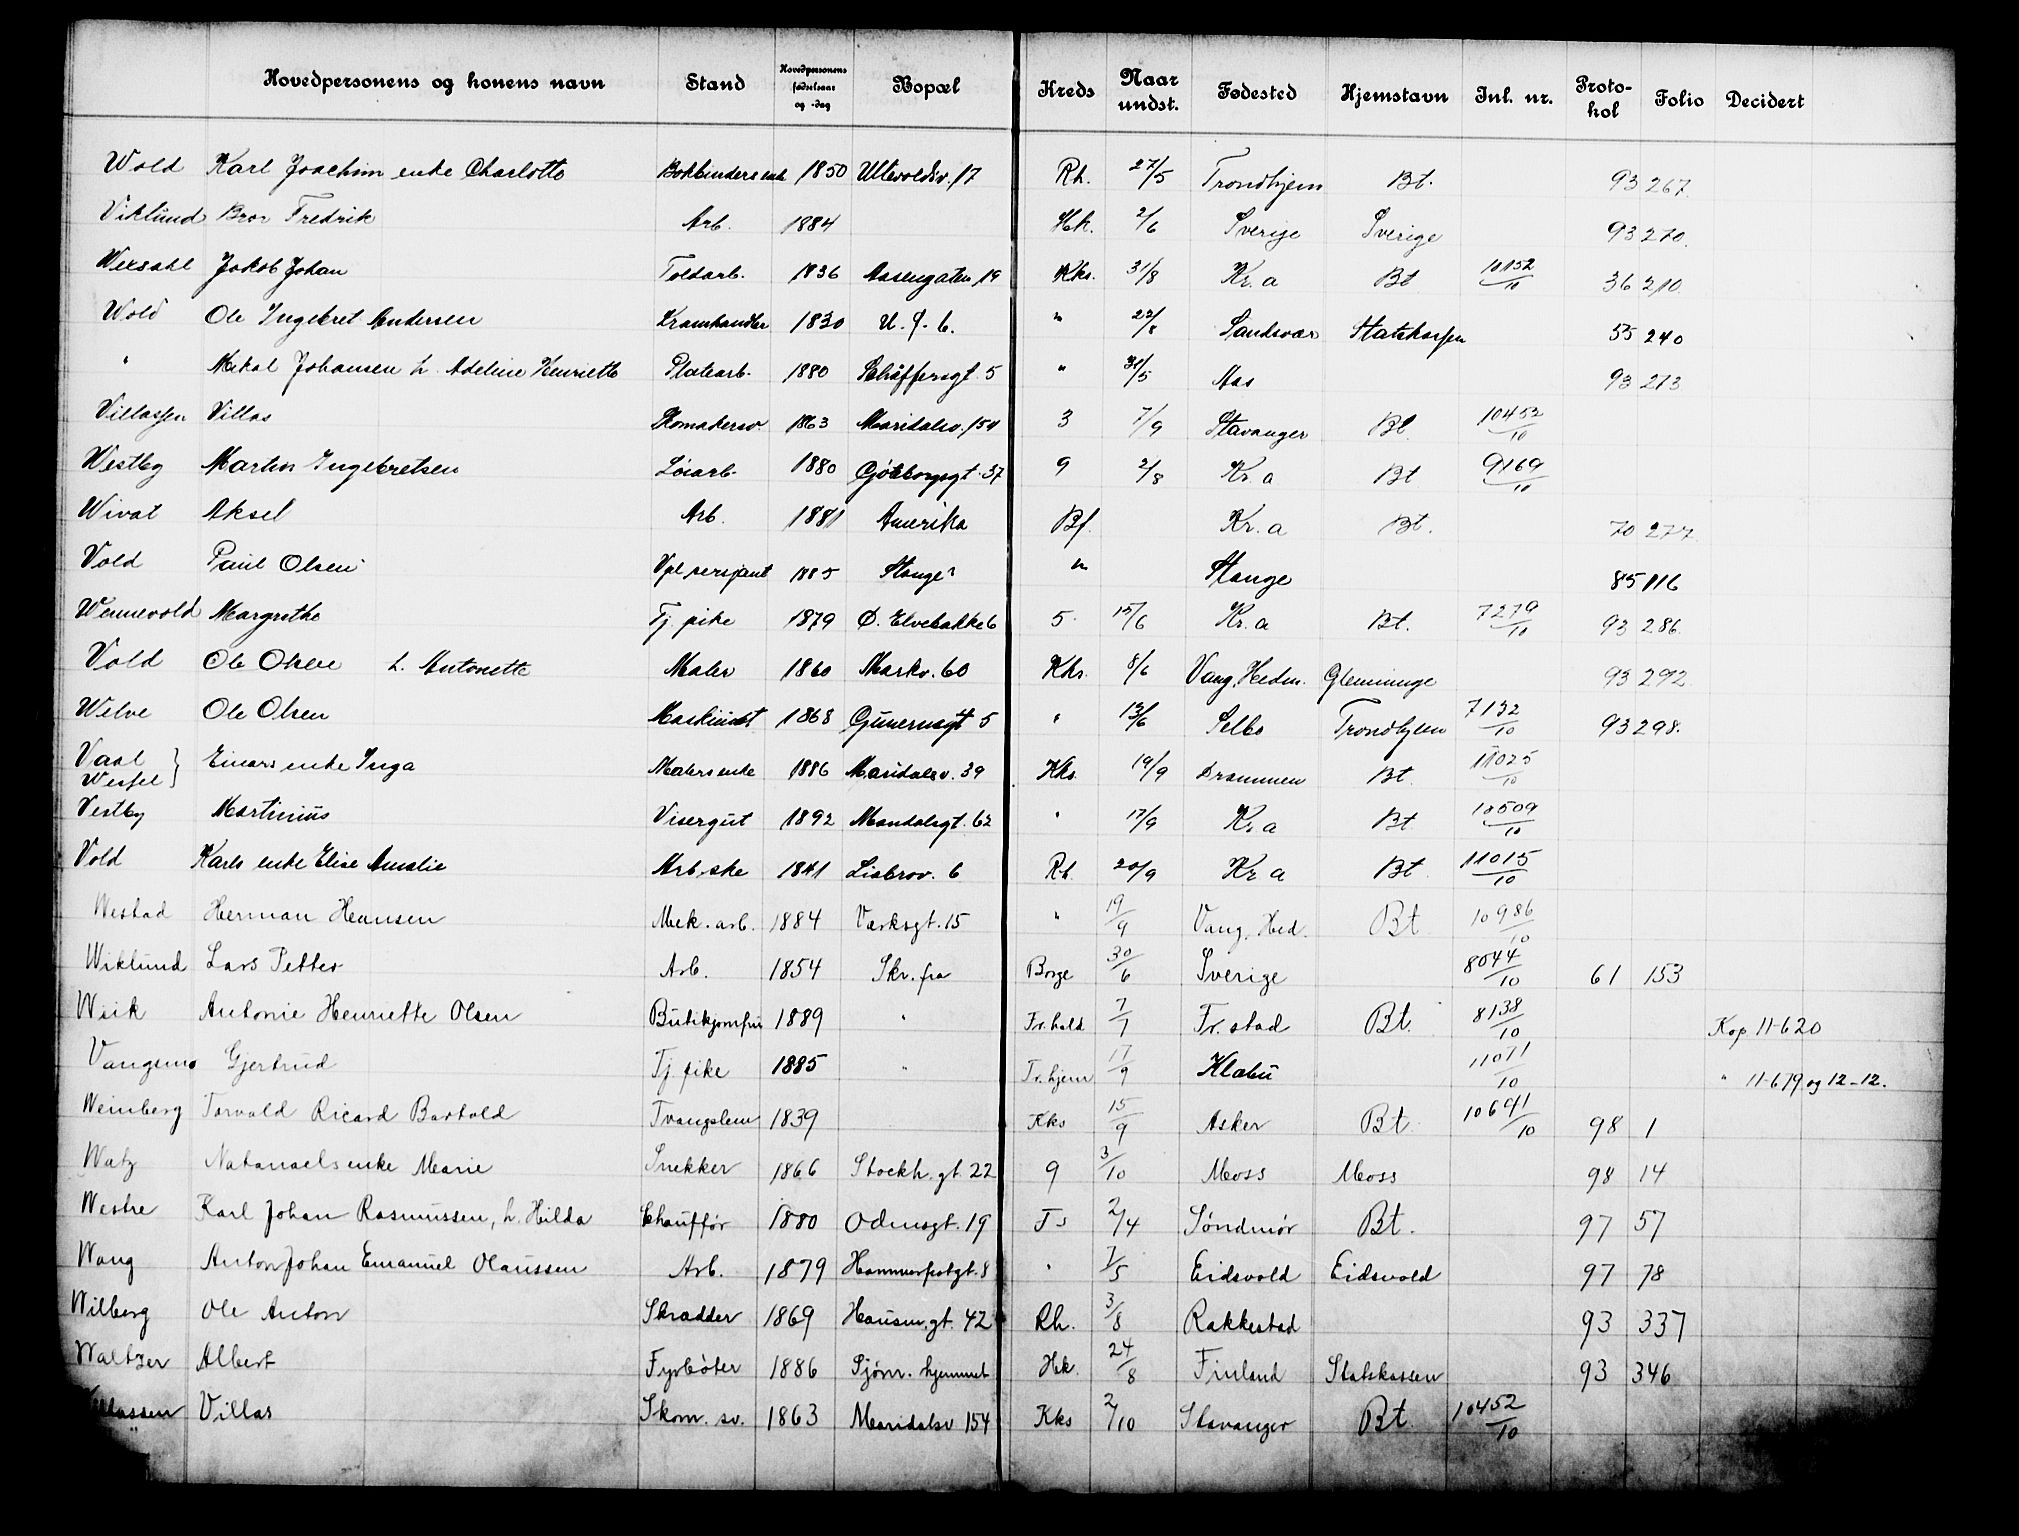 Hovedpersonens og konens navn Stand Hovedpersonens fødselsaar og -dag Bopæl Kreds Naar undst. Fødested Hjemstavn Inl. nr. Protokol Folio Decidert
Wold Karl Joachim enke Charlotte Bokbinders enke 1850 Ullevoldsv. 17 Rh. 27/5 Trondhjem Bt. 93 267.
Viklund Bror Fredrik Arb. 1884 Hk. 2/6 Sverige Sverige 93 270.
Wexsahl Jakob Johan Toldarb. 1836 Aasengaten 19 Kks. 31/8 Kr.a Bt 10152/10 36 210
Wold Ole Ingebret Andersen Kramhandler 1830 U. f. b. " 22/8 Sandsvær Statskassen 55 240
" Mikal Johansen h. Adeline Henriette Platearb. 1880 Schäffersgt. 5 " 31/5 Aas 93 273
Villassen Villas Skomakersv. 1863 Maridalsv. 154 3 7/9 Stavanger Bt. 10452/10
Westby Martin Ingebretsen Løiarb. 1880 Gjøteborggt. 37 9 2/8 Kr.a Bt 9169/10
Wivat Aksel Arb. 1881 Amerika Bf. Kr.a Bt. 70 277
Vold Paul Olsen Vpl. serjant 1885 Stange? " Stange 85 116
Wennevold Margrethe Tj. pike 1879 Ø. Elvebakke 6 5. 15/6 Kr.a Bt. 7279/10 93 286.
Vold Ole Olsen h. Antonette Maler 1860 Markv. 60 Kks. 8/6 Vang, Hedm. Glemminge 93 292.
Welve Ole Olsen Maskinist 1868 Gunerusgt 5 " 13/6 Selbo Trondhjem 7132/10 93 298.
Vaal } Einars enke Inga Malers enke 1886 Maridalsv. 39 Kks. 19/9 Drammen Bt. 11025/10
Wessel }
Vestby Martinius Visergut 1892 Mandalsgt. 62 " 17/9 Kr.a Bt 10509/10
Vold Karls enke Elise Amalie Arb.ske 1841 Lisbrov. 6 Rh. 20/9 Kr.a Bt. 11015/10
Westad Herman Hansen Mek. arb. 1884 Værksgt. 15 " 19/9 Vang, Hed. Bt 10986/10
Wiklund Lars Petter Arb. 1854 Skr. fra Borge 30/6 Sverige 8044/10 61 153
Wiik Antonie Henriette Olsen Butikjomfru 1889 " Fr.hald 7/7 Fr.stad Bt. 8138/10 Kop 11-620
Vangsmo Gjertrud Tj. pike 1885 " Tr.hjem 17/9 Klæbu 11071/10 " 11-679 og 12-12.
Weinberg Torvald Ricard Bartold Tvangslem 1839 Kks 15/9 Asker Bt. 10691/10 98 1
Watz Natanaels enke Marie Snekker 1866 Stockh.gt. 22 9 3/10 Moss Moss 98 14
Westre Karl Johan Rasmussen, h. Hilda Chauffør 1880 Odinsgt. 19 Ts 2/4 Søndmør Bt. 97 57
Wang Anton Johan Emanuel Olaussen Arb. 1879 Hammerfestgt. 8 " 7/5 Eidsvold Eidsvold 97 78
Wilberg Ole Anton Skrædder 1869 Hausm.gt. 42 Rh. 3/8 Rakkestad 93 337
Waltzer Albert Fyrbøter 1886 Sjøm. hjemmet Hk. 24/8 Finland Statskassen 93 346
Villassen Villas Skom. sv. 1863 Maridalsv 154 Kks 2/10 Stavanger Bt. 10452/10